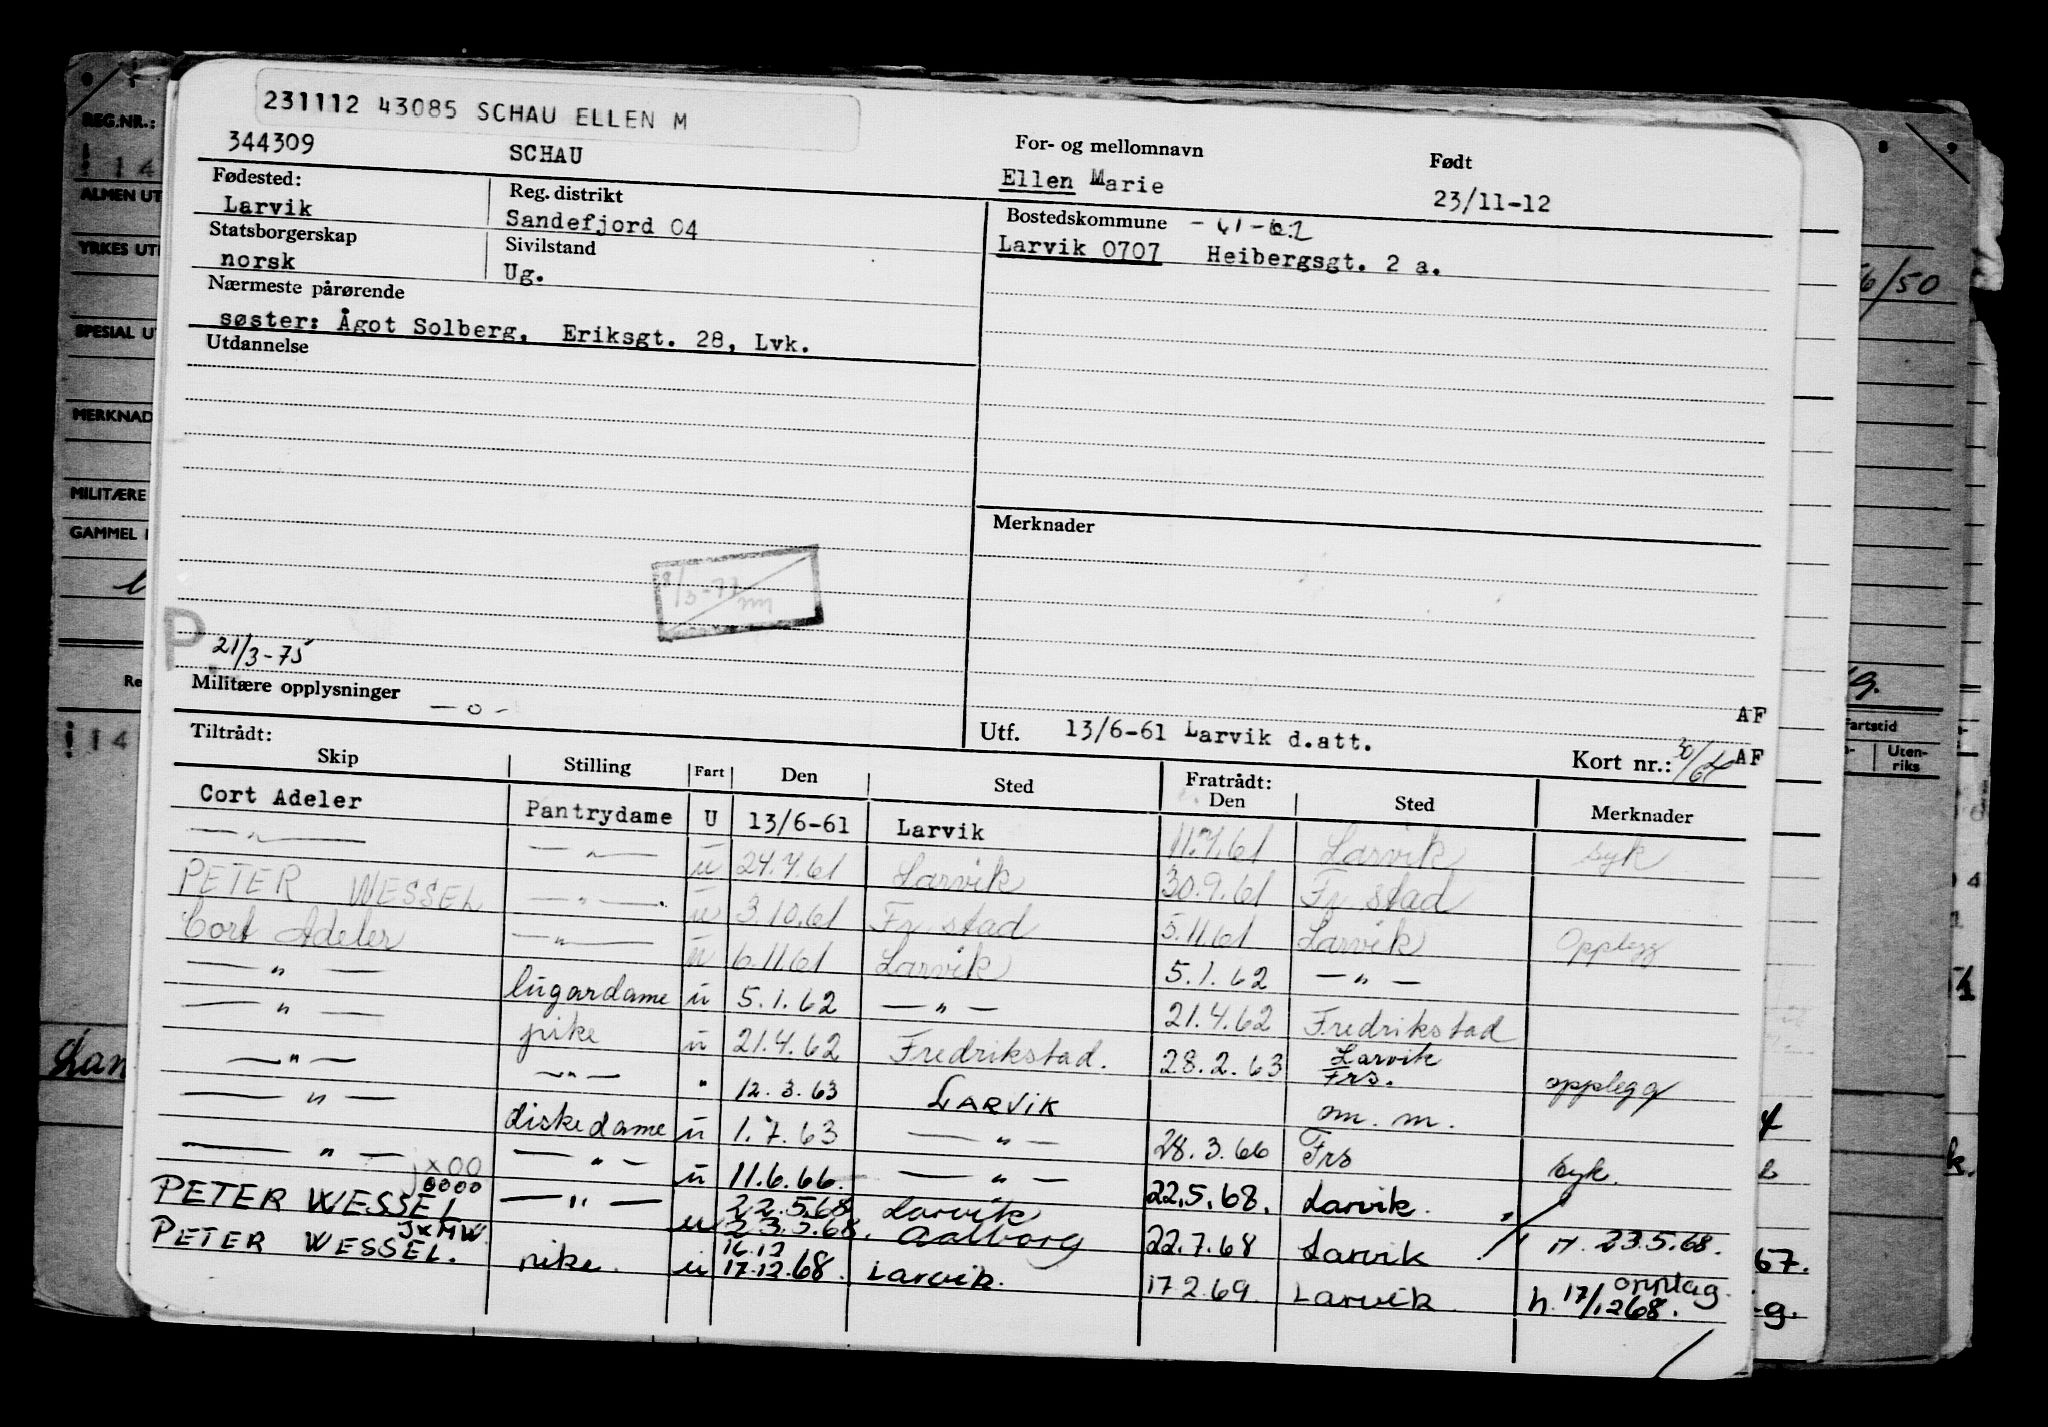 231112 43085 SCHAU ELLEN M
344309 SCHAU
For- og mellomnavn Født
Ellen Marie 23/11-12
Fødested: Reg. distrikt
Larvik Sandefjord 04
Statsborgerskap Sivilstand
norsk Ug.
Bostedskommune
Larvik 0707 Heibergsgt. 2 a.
Nærmeste pårørende
søster: Ågot Solberg, Eriksgt. 28, Lvk.
Utdannelse
Merknader
P.
21/3-75
Militære opplysninger
— o -
AF
Utf. 13/6-61 Larvik d.att.
Kort nr.: AF
Tiltrådt: Fratrådt:
Skip Stilling Fart Den Sted Den Sted Merknader
Cort Adeler Pantrydame U 13/6-61 Larvik 11.7.61 Larvik syk
— " — — " — u 24.7.61 Larvik 30.9.61 Fr stad
PETER WESSEL — " — u 3.10.61 Fr stad 5.11.61 Larvik Opplegg
Cort Adeler — " — u 6.11.61 Larvik 5.1.62 — " —
— " — lugardame u 5.1.62 — " — 21.4.62 Fredrikstad
— " — pike u 21.4.62 Fredrikstad. 28.2.63 Larvik Frs. opplegg
— " — — " — " 12.3.63 LARVIK om. m.
— " — diskedame u 1.7.63 — " — 28.3.66 Frs syk.
— " — — " — u 11.6.66. — " — 22.5.68. Larvik.
PETER WESSEL — " — u 22.5.68 23.5.68. Larvik Aalborg 22.7.68 Larvik 23.5.68.
PETER WESSEL. pike. u 16.12 17.12.68. Larvik. 17.2.69. Larvik opplag. h. 17/12 68.
REG.NR.:
! 14
ALMEN UT
YRKES UT
SPESIAL U
MERKNAD
MILITÆRE
GAMMEL
! 14
6/50
Fartstid
Uten-
riks
67.